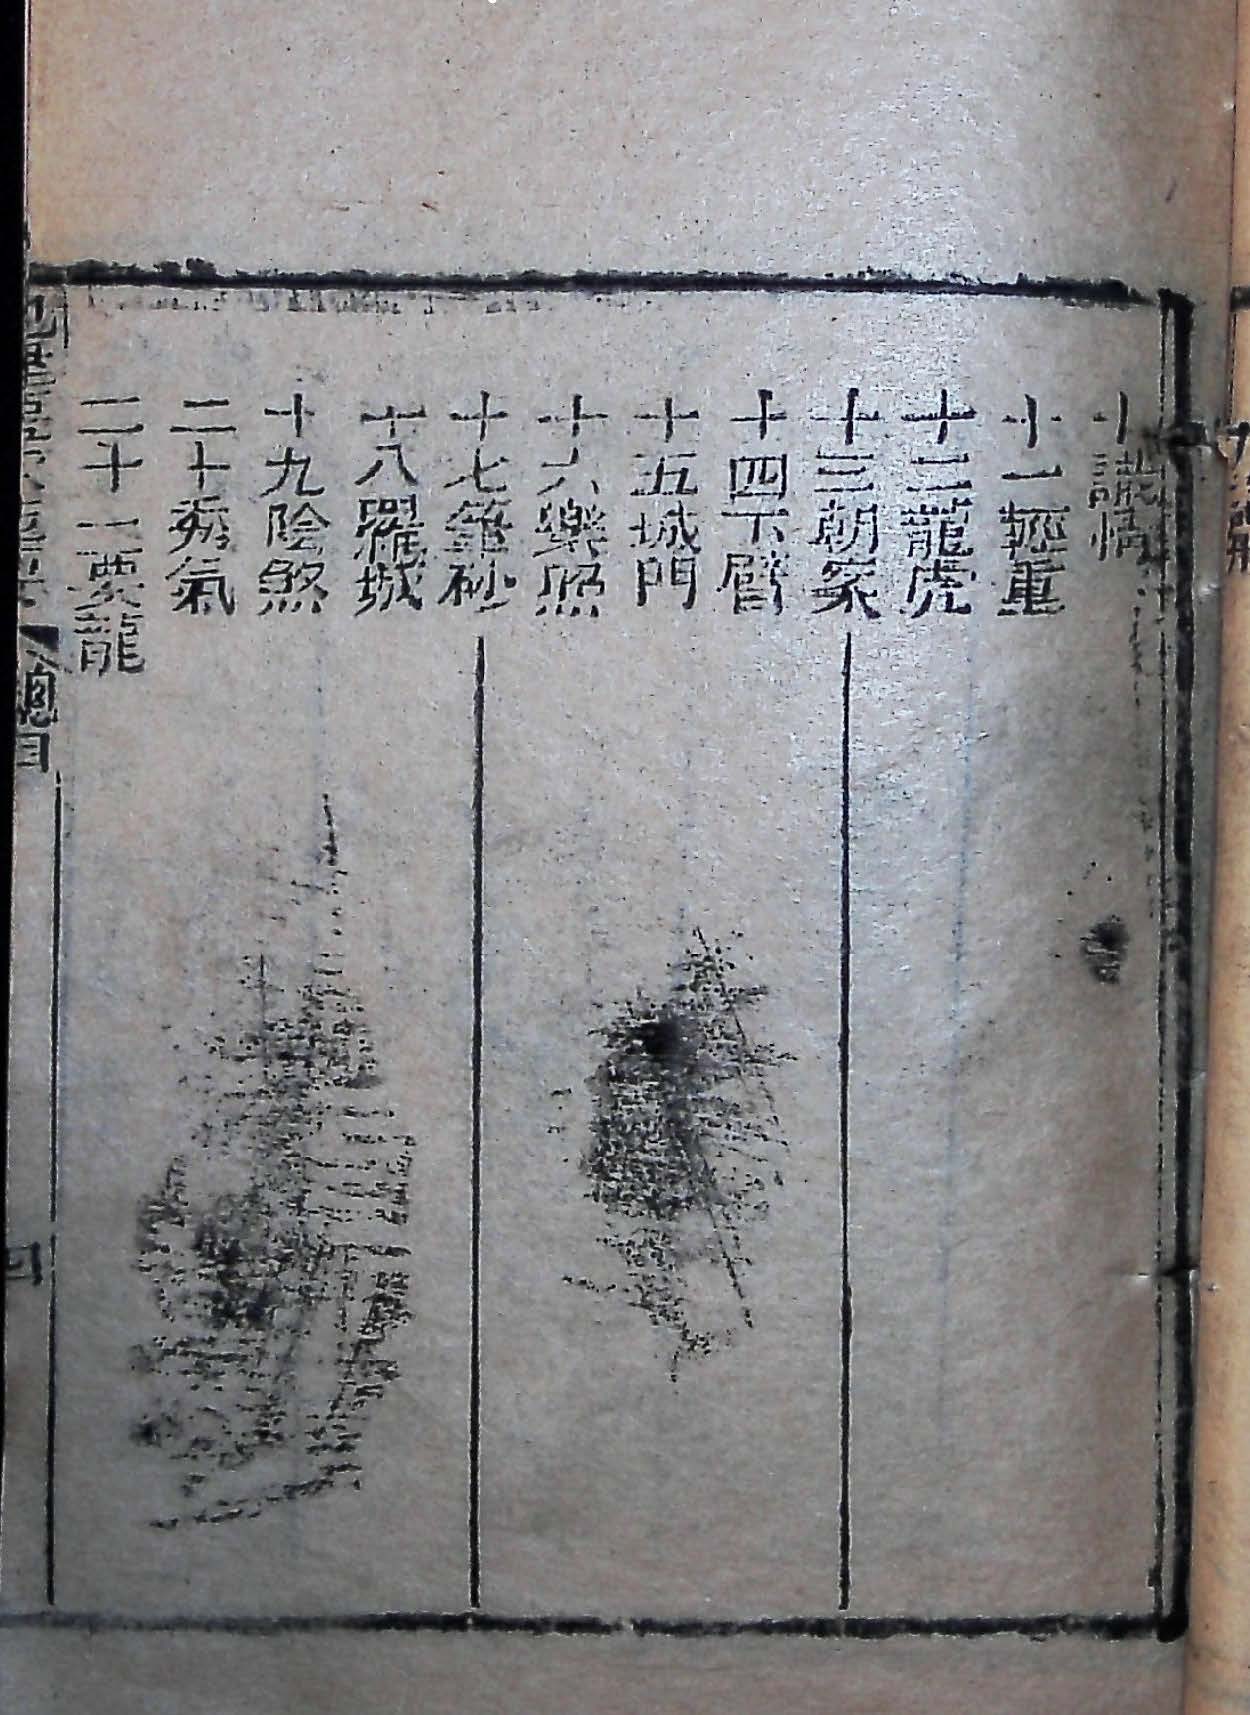 十龍情
十一輕重
十二龍虎
十三朝案
十四下臂
十五城門
十六樂照
十七龜砂
十八羅城
十九陰煞
二十剪氣
二十一要龍
總目
四